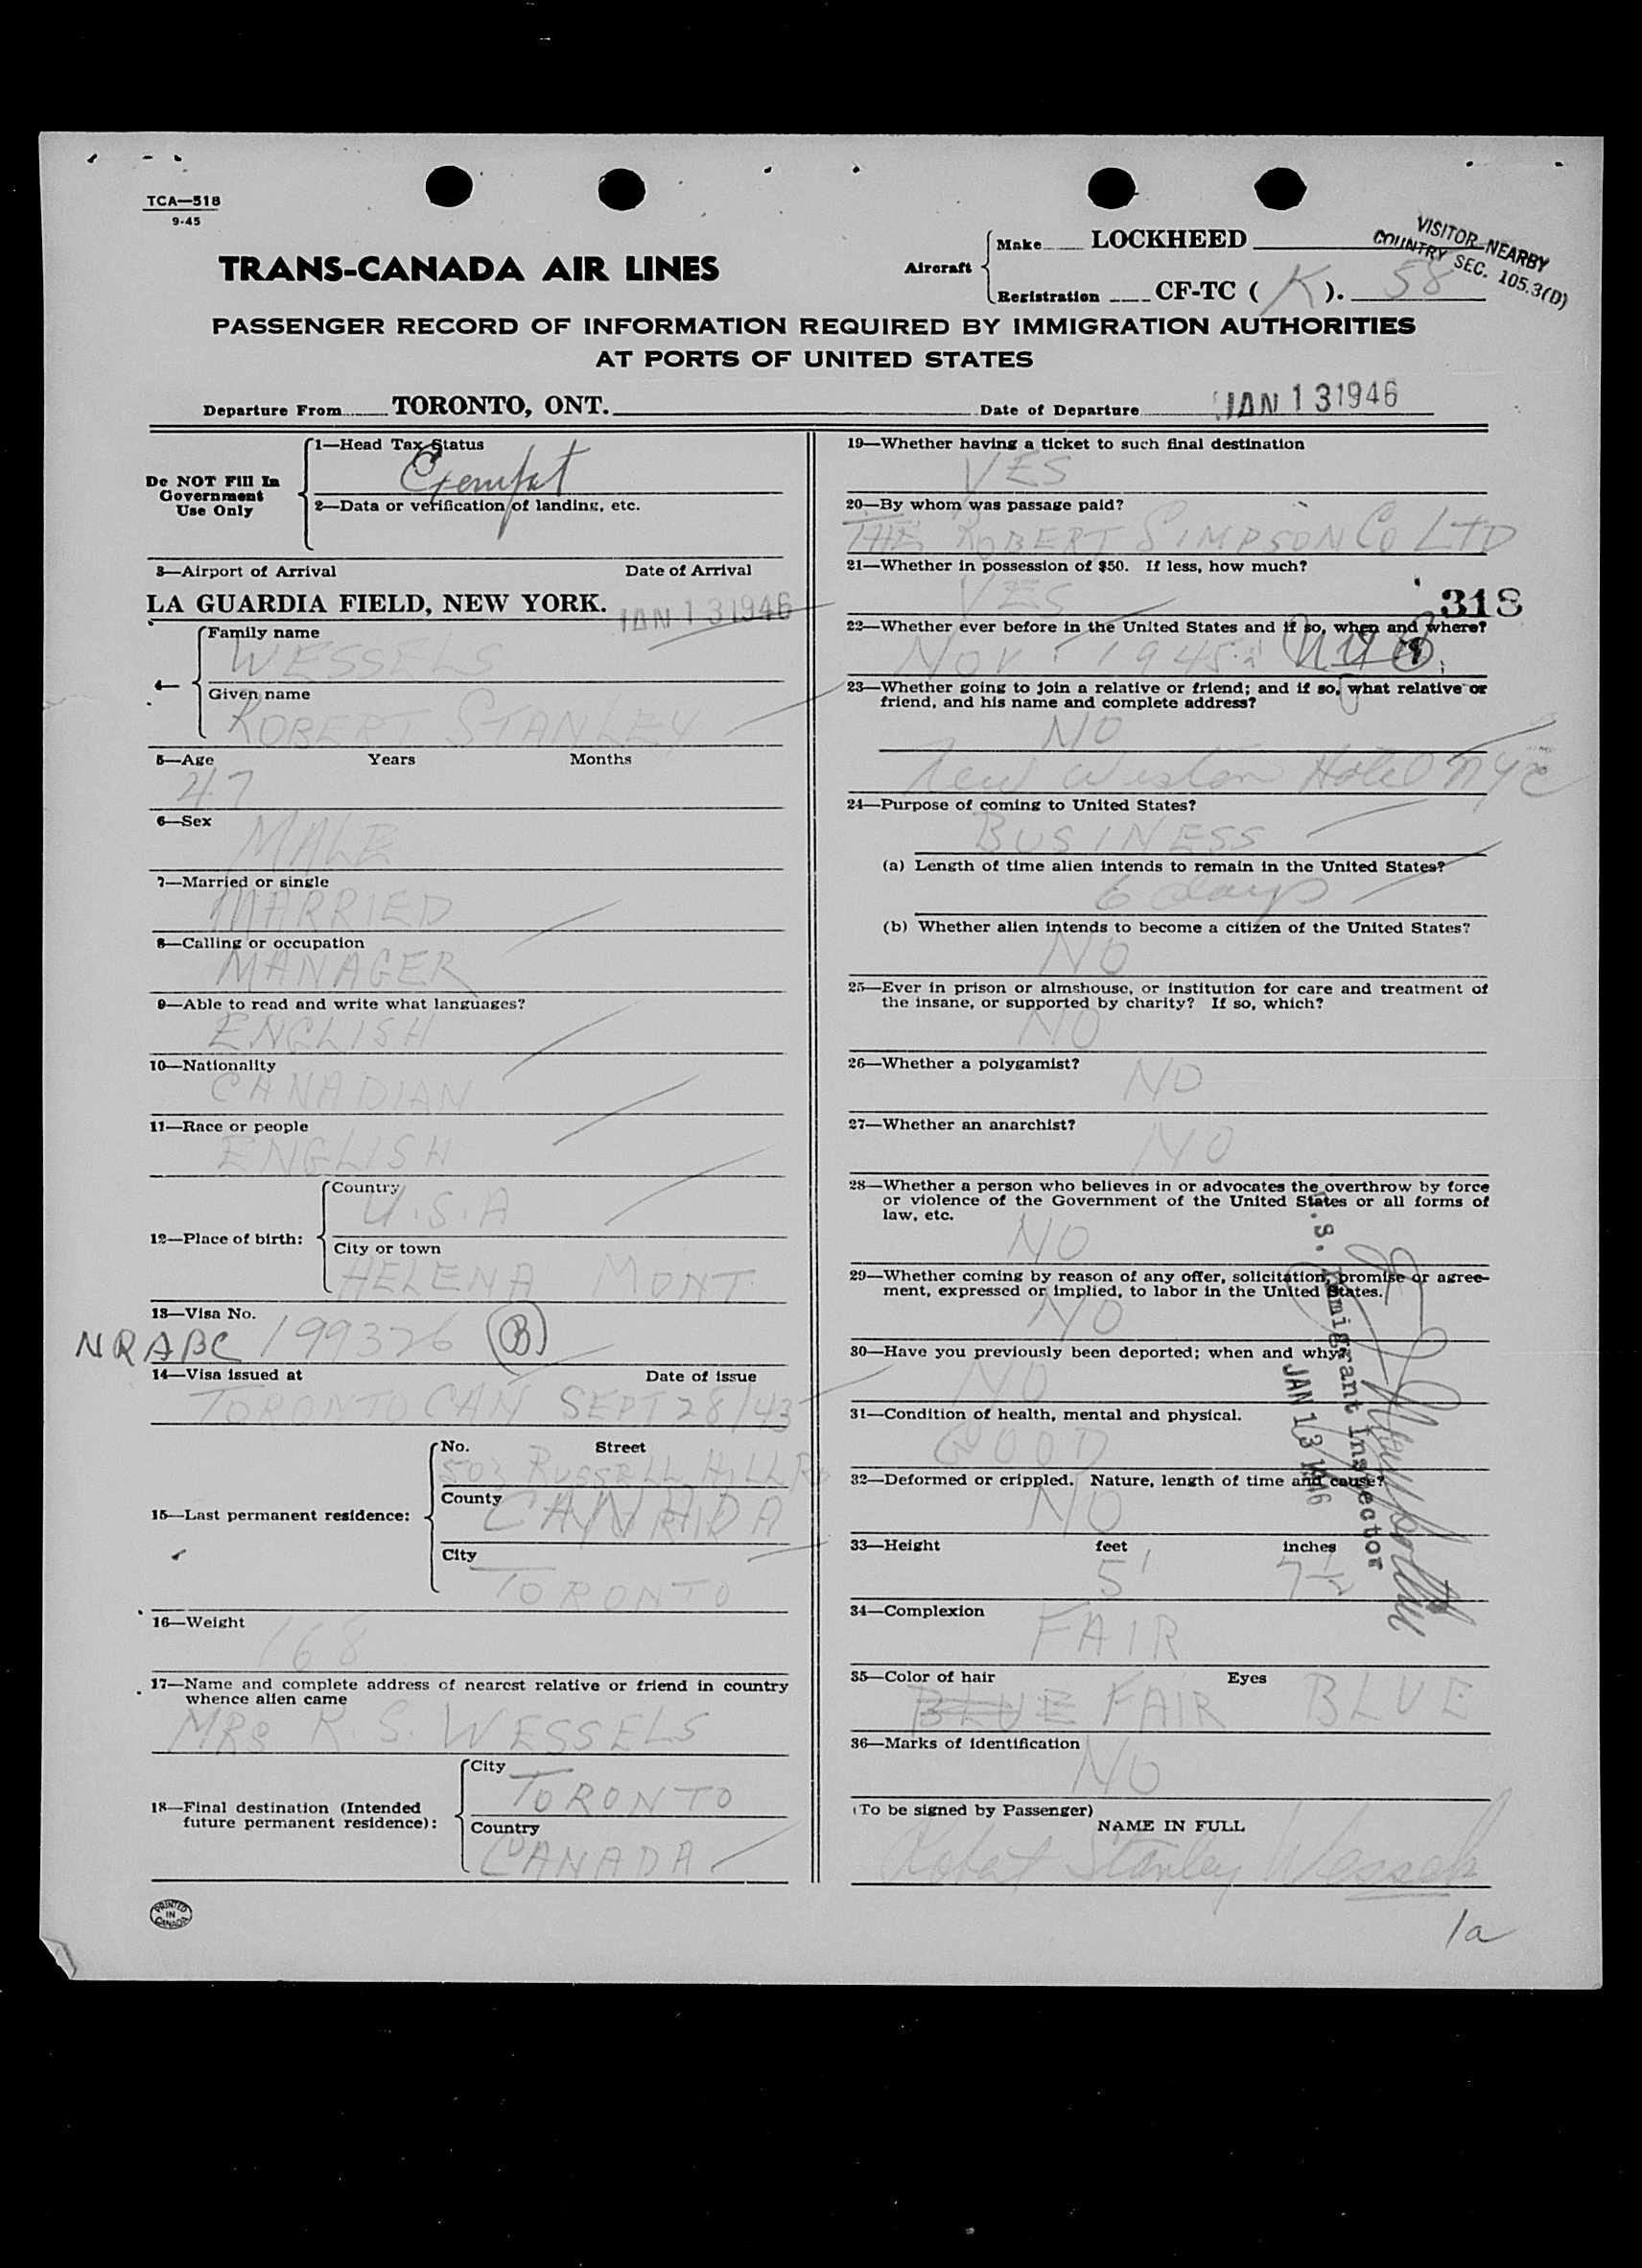 TCA—518
9-45
TRANS-CANADA AIR LINES
Aircraft
Make LOCKHEED
Registration CF-TC ( K ). 58
VISITOR NEARBY
COUNTRY SEC. 105.3(D)
PASSENGER RECORD OF INFORMATION REQUIRED BY IMMIGRATION AUTHORITIES
AT PORTS OF UNITED STATES
Departure From TORONTO, ONT. Date of Departure JAN 13 1946
Do NOT Fill In
Government
Use Only
1—Head Tax Status
Exempt
2—Data or verification of landing, etc.
3—Airport of Arrival Date of Arrival
LA GUARDIA FIELD, NEW YORK. JAN 13 1946
4—
Family name
WESSELS
Given name
ROBERT STANLEY
5—Age Years Months
47
6—Sex
MALE
7—Married or single
MARRIED
8—Calling or occupation
MANAGER
9—Able to read and write what languages?
ENGLISH
10—Nationality
CANADIAN
11—Race or people
ENGLISH
12—Place of birth:
Country
U.S.A
City or town
HELENA MONT
13—Visa No.
NRABC 199326 (B)
14—Visa issued at Date of issue
TORONTO CAN SEPT 28/43
15—Last permanent residence:
No. Street
503 RUSSELL HILL RD
County
CANADA
City
TORONTO
16—Weight
168
17—Name and complete address of nearest relative or friend in country
whence alien came
MRS R. S. WESSELS
18—Final destination (Intended
future permanent residence):
City
TORONTO
Country
CANADA
PRINTED
IN
CANADA
19—Whether having a ticket to such final destination
YES
20—By whom was passage paid?
THE ROBERT SIMPSON CO LTD
21—Whether in possession of $50. If less, how much?
YES
318
22—Whether ever before in the United States and if so, when and where?
NOV 1945 NYC
23—Whether going to join a relative or friend; and if so, what relative or
friend, and his name and complete address?
NO
New Weston Hotel NYC
24—Purpose of coming to United States?
BUSINESS
(a) Length of time alien intends to remain in the United States?
6 days
(b) Whether alien intends to become a citizen of the United States?
NO
25—Ever in prison or almshouse, or institution for care and treatment of
the insane, or supported by charity? If so, which?
NO
26—Whether a polygamist?
NO
27—Whether an anarchist?
NO
28—Whether a person who believes in or advocates the overthrow by force
or violence of the Government of the United States or all forms of
law, etc.
NO
29—Whether coming by reason of any offer, solicitation, promise or agree-
ment, expressed or implied, to labor in the United States.
NO
30—Have you previously been deported; when and why?
NO
31—Condition of health, mental and physical.
GOOD
32—Deformed or crippled. Nature, length of time and cause?
NO
U.S. Immigrant Inspector
JAN 13 1946
33—Height feet inches
5' 7½
34—Complexion
FAIR
35—Color of hair Eyes
BLUE FAIR BLUE
36—Marks of identification
NO
(To be signed by Passenger)
NAME IN FULL
Robert Stanley Wessels
1a